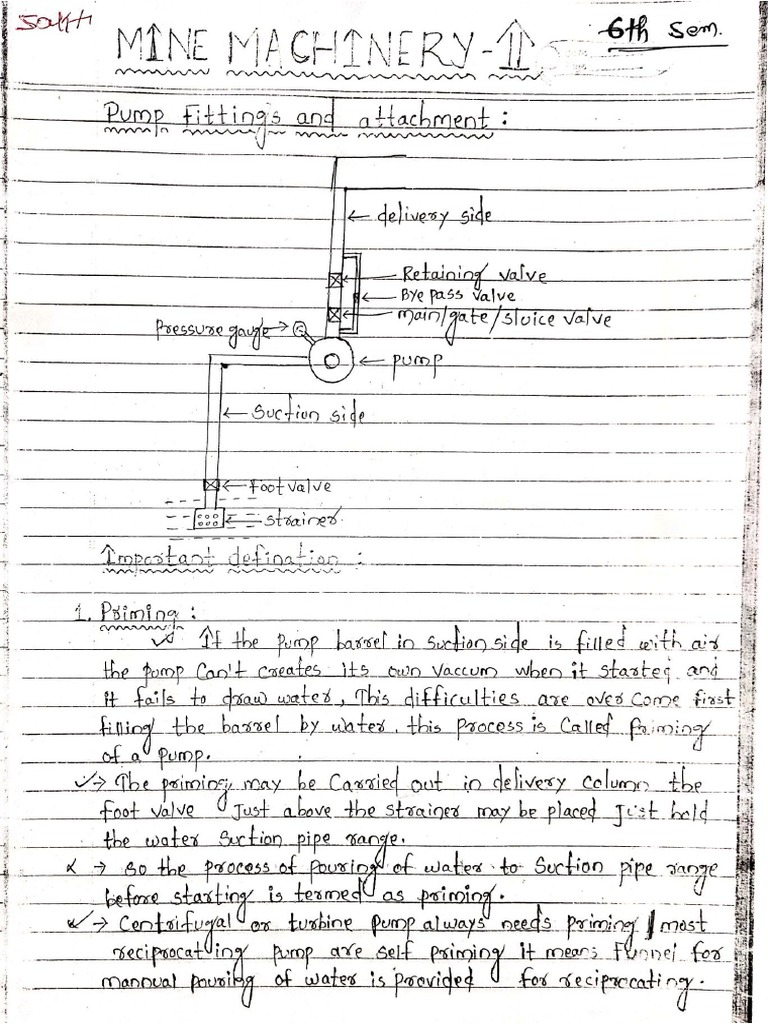 6th Sem.
MINE MACHINERY-II
Pump fittings and attachment :
← delivery side
Retaining valve
Bye pass valve
main/gate/sluice valve
Pressure gauge →
← pump
← Suction side
← foot valve
← strainer.
Important defination :
1. Priming :
If the pump barrel in suction side is filled with air
the pump can't creates its own vaccum when it started and
it fails to draw water, This difficulties are over come first
filling the barrel by water. this process is called priming
of a pump.
→ The priming may be carried out in delivery column the
foot valve Just above the strainer may be placed Just hold
the water suction pipe range.
→ so the process of pouring of water to suction pipe range
before starting is termed as priming.
→ Centrifugal or turbine pump always needs priming, most
reciprocating pump are self priming it means funnel for
mannual pouring of water is provided for reciprocating.